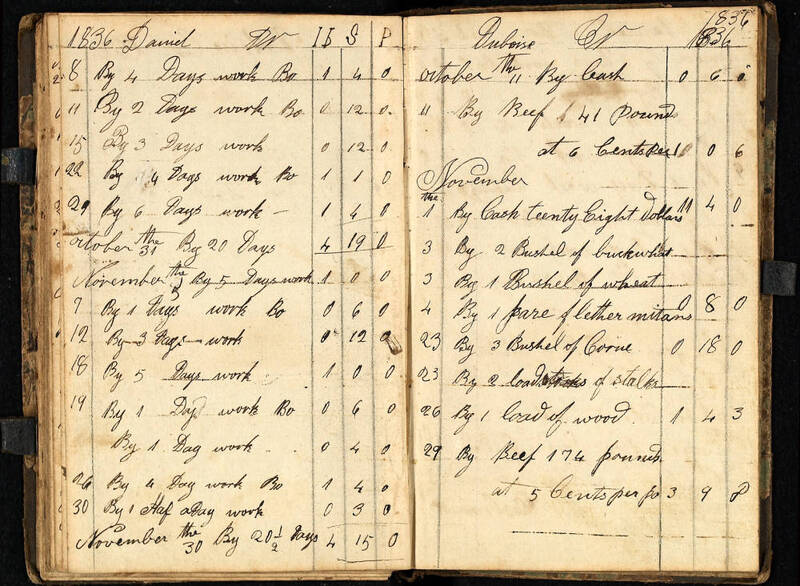 1836 Daniel Dr lb S P
8 By 4 Days work Bo 1 4 0
11 By 2 Days work Bo 0 12 0
15 By 3 Days work 0 12 0
22 By 4 Days work Bo 1 1 0
29 By 6 Days work 1 4 0
october the 31 By 20 Days 4 19 0
November the By 5 Days work 1 0 0
7 By 1 Days work Bo 0 6 0
12 By 3 Days work 0 12 0
18 By 5 Days work 1 0 0
19 By 1 Day work Bo 0 6 0
By 1 Day work 0 4 0
26 By 4 Day work Bo 1 4 0
30 By 1 Haf a Day work 0 3 0
November the 30 By 20 1/2 Days 4 15 0
1836
Duboise Cr 1836
october the 11 By Cash 0 6 0
11 By Beef 41 pounds
at 6 Cents per 1 0 6
November
the
1 By Cash teenty Eight dollars 11 4 0
3 By 2 Bushel of buckwhat
3 By 1 Bushel of wheat
4 By 1 pare of lether mitans 0 8 0
23 By 3 Bushel of Corne 0 18 0
23 By 2 load of stalks
26 By 1 load of wood 1 4 3
29 By Beef 174 pounds
at 5 Cents per po 3 9 8